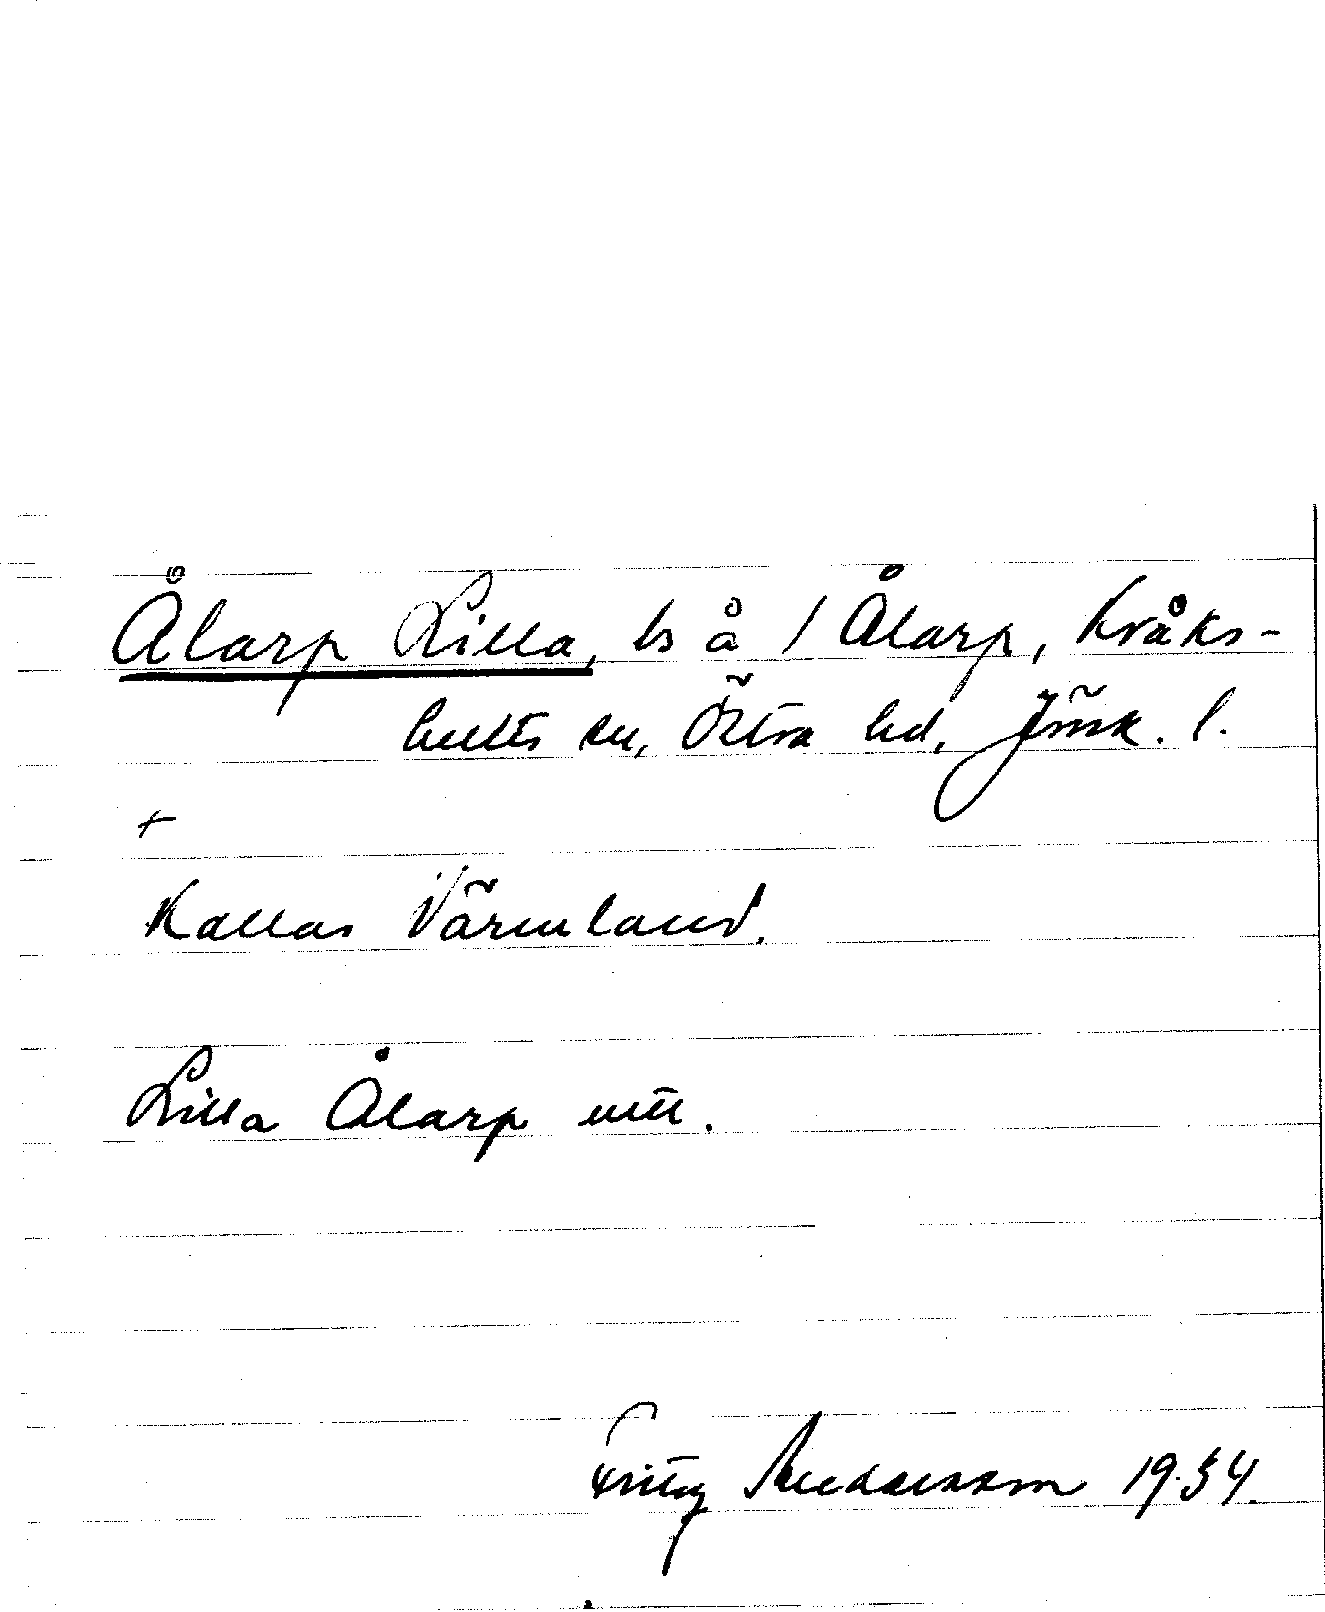 Ålarp Lilla, ls å 1 Ålarp, Kråks-
hults sn, Östra hd, Jönk. l.
+
Kallas Värmland.
Lilla Ålarp
Fritz Andersson 1934.